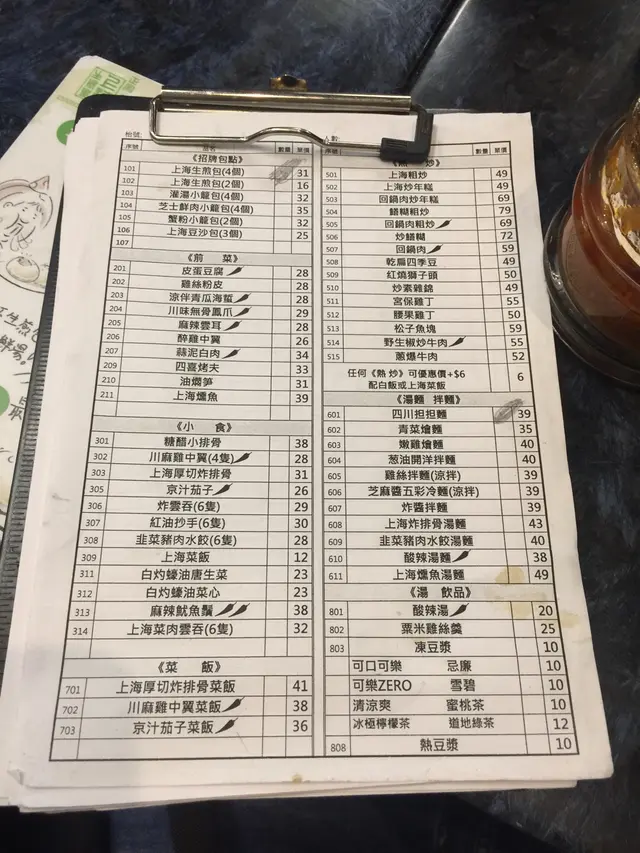 枱號:
人數:
序號 品名 數量 單價
《招牌包點》
101 上海生煎包(4個) 31
102 上海生煎包(2個) 16
103 灌湯小籠包(4個) 32
104 芝士鮮肉小籠包(4個) 35
105 蟹粉小籠包(2個) 32
106 上海豆沙包(3個) 25
107
《前 菜》
201 皮蛋豆腐 28
202 雞絲粉皮 28
203 涼伴青瓜海蜇 28
204 川味無骨鳳爪 29
205 麻辣雲耳 28
206 醉雞中翼 26
207 蒜泥白肉 34
209 四喜烤夫 33
210 油燜筍 31
211 上海燻魚 39
《小 食》
301 糖醋小排骨 38
302 川麻雞中翼(4隻) 28
303 上海厚切炸排骨 31
305 京汁茄子 26
306 炸雲吞(6隻) 29
307 紅油抄手(6隻) 30
308 韭菜豬肉水餃(6隻) 28
309 上海菜飯 12
311 白灼蠔油唐生菜 23
312 白灼蠔油菜心 23
313 麻辣魷魚鬚 38
314 上海菜肉雲吞(6隻) 32
《菜 飯》
701 上海厚切炸排骨菜飯 41
702 川麻雞中翼菜飯 38
703 京汁茄子菜飯 36
序號 數量 單價
《熱 炒》
501 上海粗炒 49
502 上海炒年糕 49
503 回鍋肉炒年糕 69
504 鱔糊粗炒 79
505 回鍋肉粗炒 69
506 炒鱔糊 72
507 回鍋肉 59
508 乾扁四季豆 49
509 紅燒獅子頭 50
510 炒素雜錦 49
511 宮保雞丁 55
512 腰果雞丁 50
513 松子魚塊 59
514 野生椒炒牛肉 55
515 蔥爆牛肉 52
任何《熱炒》可優惠價+$6
配白飯或上海菜飯 6
《湯麵 拌麵》
601 四川担担麵 39
602 青菜燴麵 35
603 嫩雞燴麵 40
604 葱油開洋拌麵 40
605 雞絲拌麵(涼拌) 39
606 芝麻醬五彩冷麵(涼拌) 39
607 炸醬拌麵 39
608 上海炸排骨湯麵 43
609 韭菜豬肉水餃湯麵 40
610 酸辣湯麵 38
611 上海燻魚湯麵 49
《湯 飲品》
801 酸辣湯 20
802 粟米雞絲羹 25
803 凍豆漿 10
可口可樂 忌廉 10
可樂ZERO 雪碧 10
清涼爽 蜜桃茶 10
冰極檸檬茶 道地綠茶 12
808 熱豆漿 10